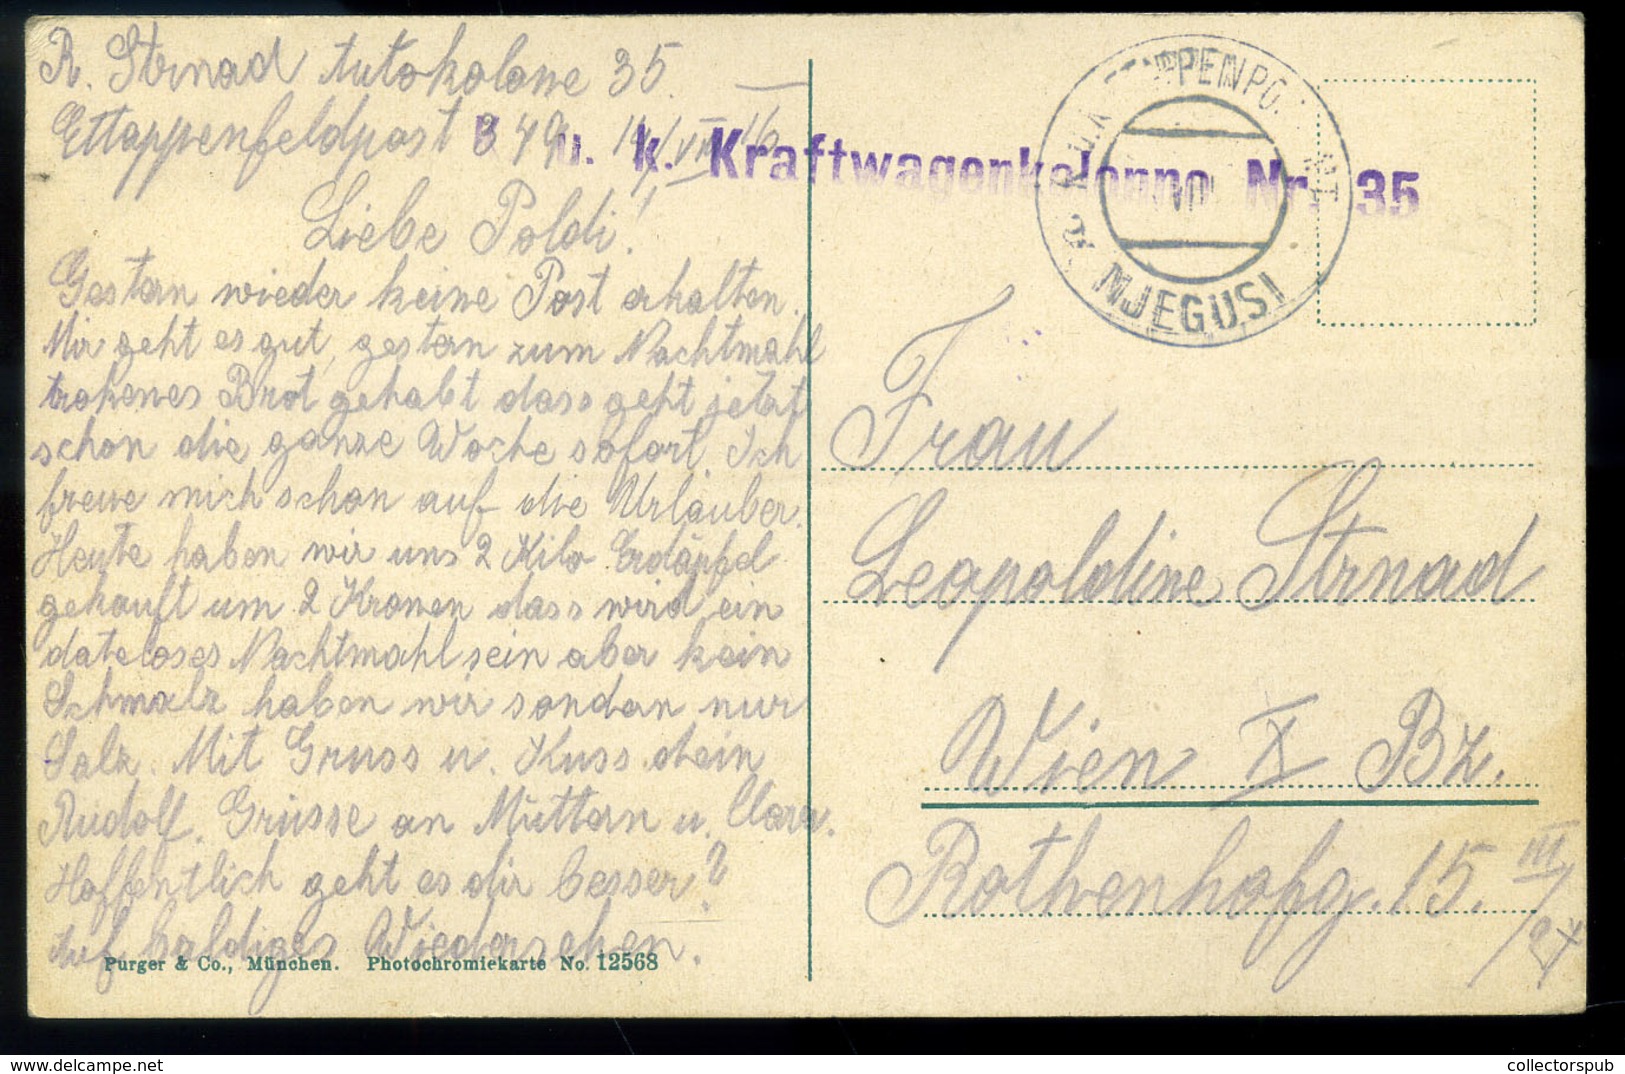 R. Strnad Autokolone 35.
Ettappenfeldpost 349 14/VII 16
K. u. k. Kraftwagenkolonne Nr. 35
NJEGUSI
Liebe Poldi!
Gestern wieder keine Post erhalten.
Mir geht es gut, gestern zum Nachtmahl
trokenes Brot gehabt dass geht jetzt
schon die ganze Woche sofort. Ich
freue mich schon auf die Urlauber.
Heute haben wir uns 2 Kilo Erdäpfel
gekauft um 2 Kronen dass wird ein
dateloses Nachtmahl sein aber kein
Schmalz haben wir sondern nur
Salz. Mit Gruss u. Kuss dein
Rudolf. Grüsse an Muttern u. Clara.
Hoffentlich geht es dir besser?
Auf baldiges Wiedersehen.
Purger & Co., München. Photochromiekarte No. 12568
Frau
Leopoldine Strnad
Wien X Bz.
Rothenhofg. 15. III/24
collectorspub